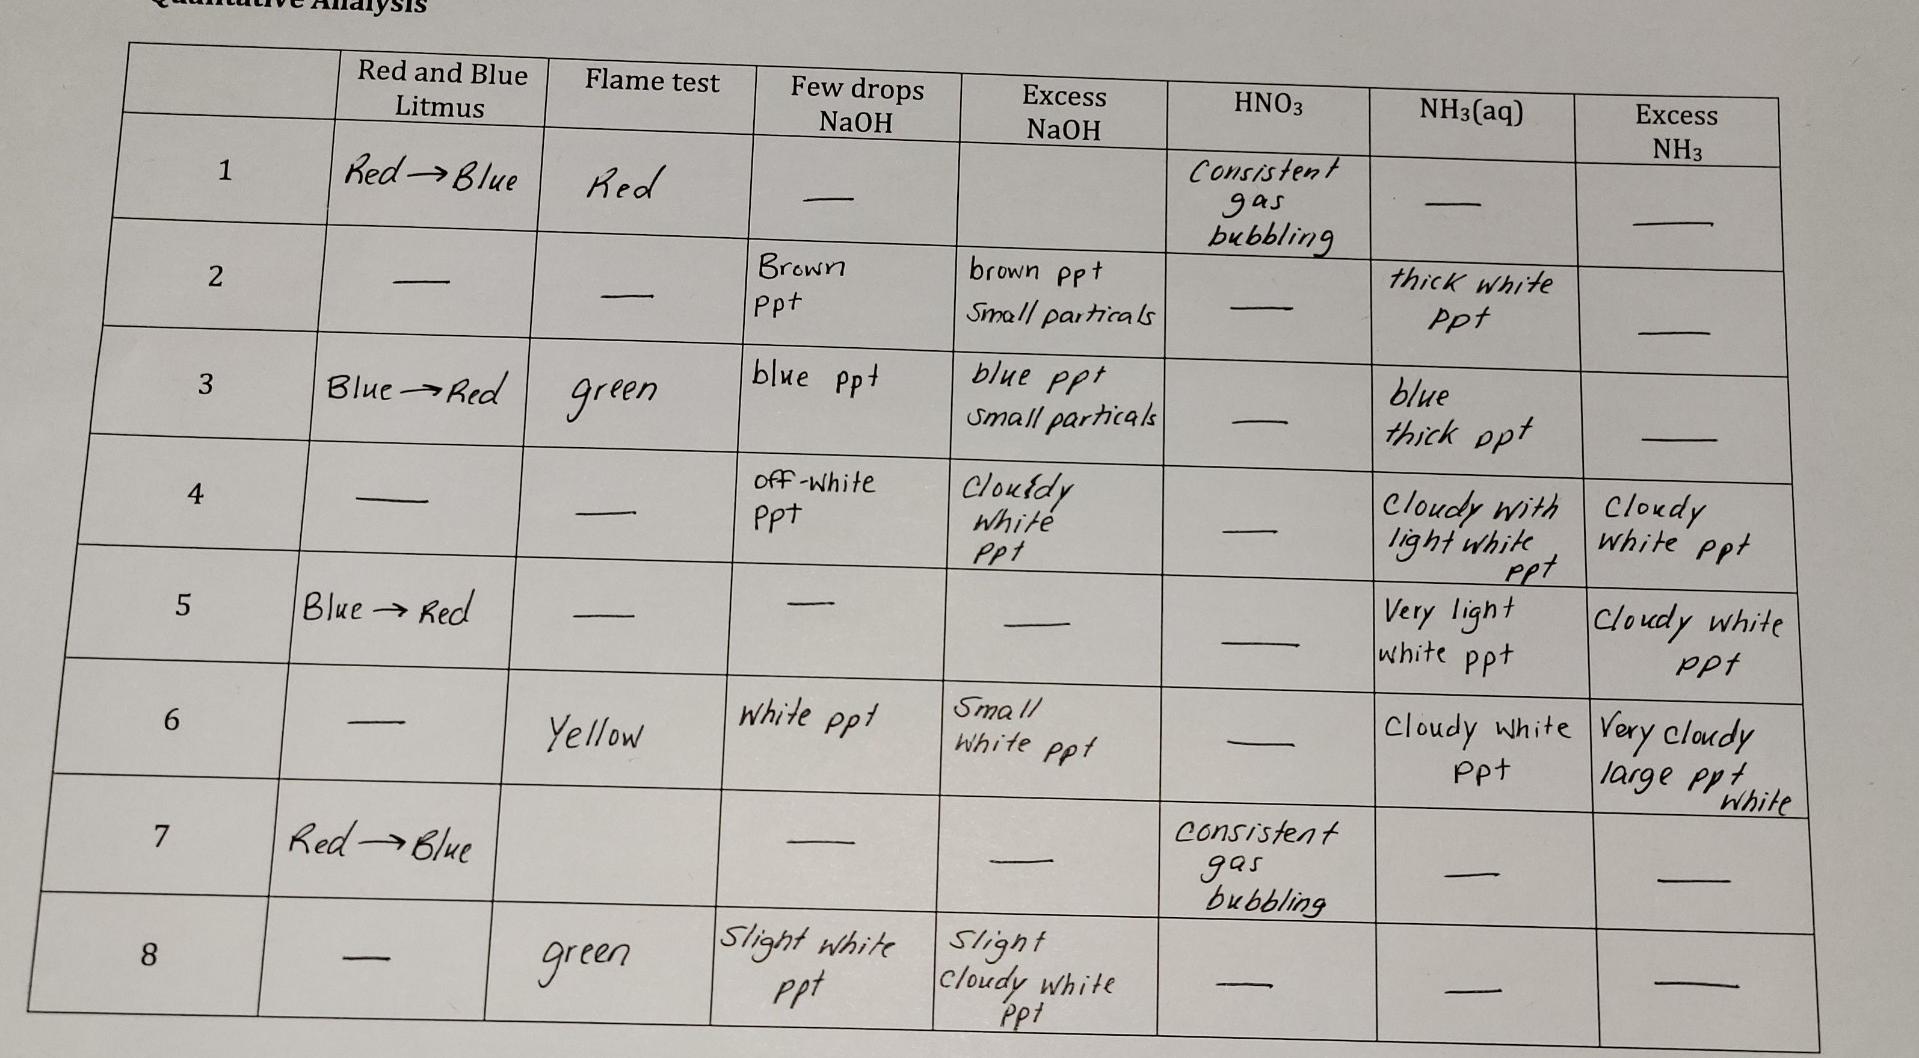 Qualitative Analysis
Red and Blue
Litmus
Flame test
Few drops
NaOH
Excess
NaOH
HNO3
NH3(aq)
Excess
NH3
1
Red → Blue
Red
—
Consistent
gas
bubbling
—
—
2
—
—
Brown
ppt
brown ppt
Small particals
—
thick white
ppt
—
3
Blue → Red
green
blue ppt
blue ppt
small particals
—
blue
thick ppt
—
4
—
—
off-white
ppt
Cloudy
white
ppt
—
Cloudy with
light white
ppt
Cloudy
white ppt
5
Blue → Red
—
—
—
—
Very light
white ppt
Cloudy white
ppt
6
—
Yellow
White ppt
Small
white ppt
—
Cloudy white
ppt
Very cloudy
large ppt
white
7
Red → Blue
—
—
consistent
gas
bubbling
—
—
8
—
green
Slight white
ppt
Slight
cloudy white
ppt
—
—
—